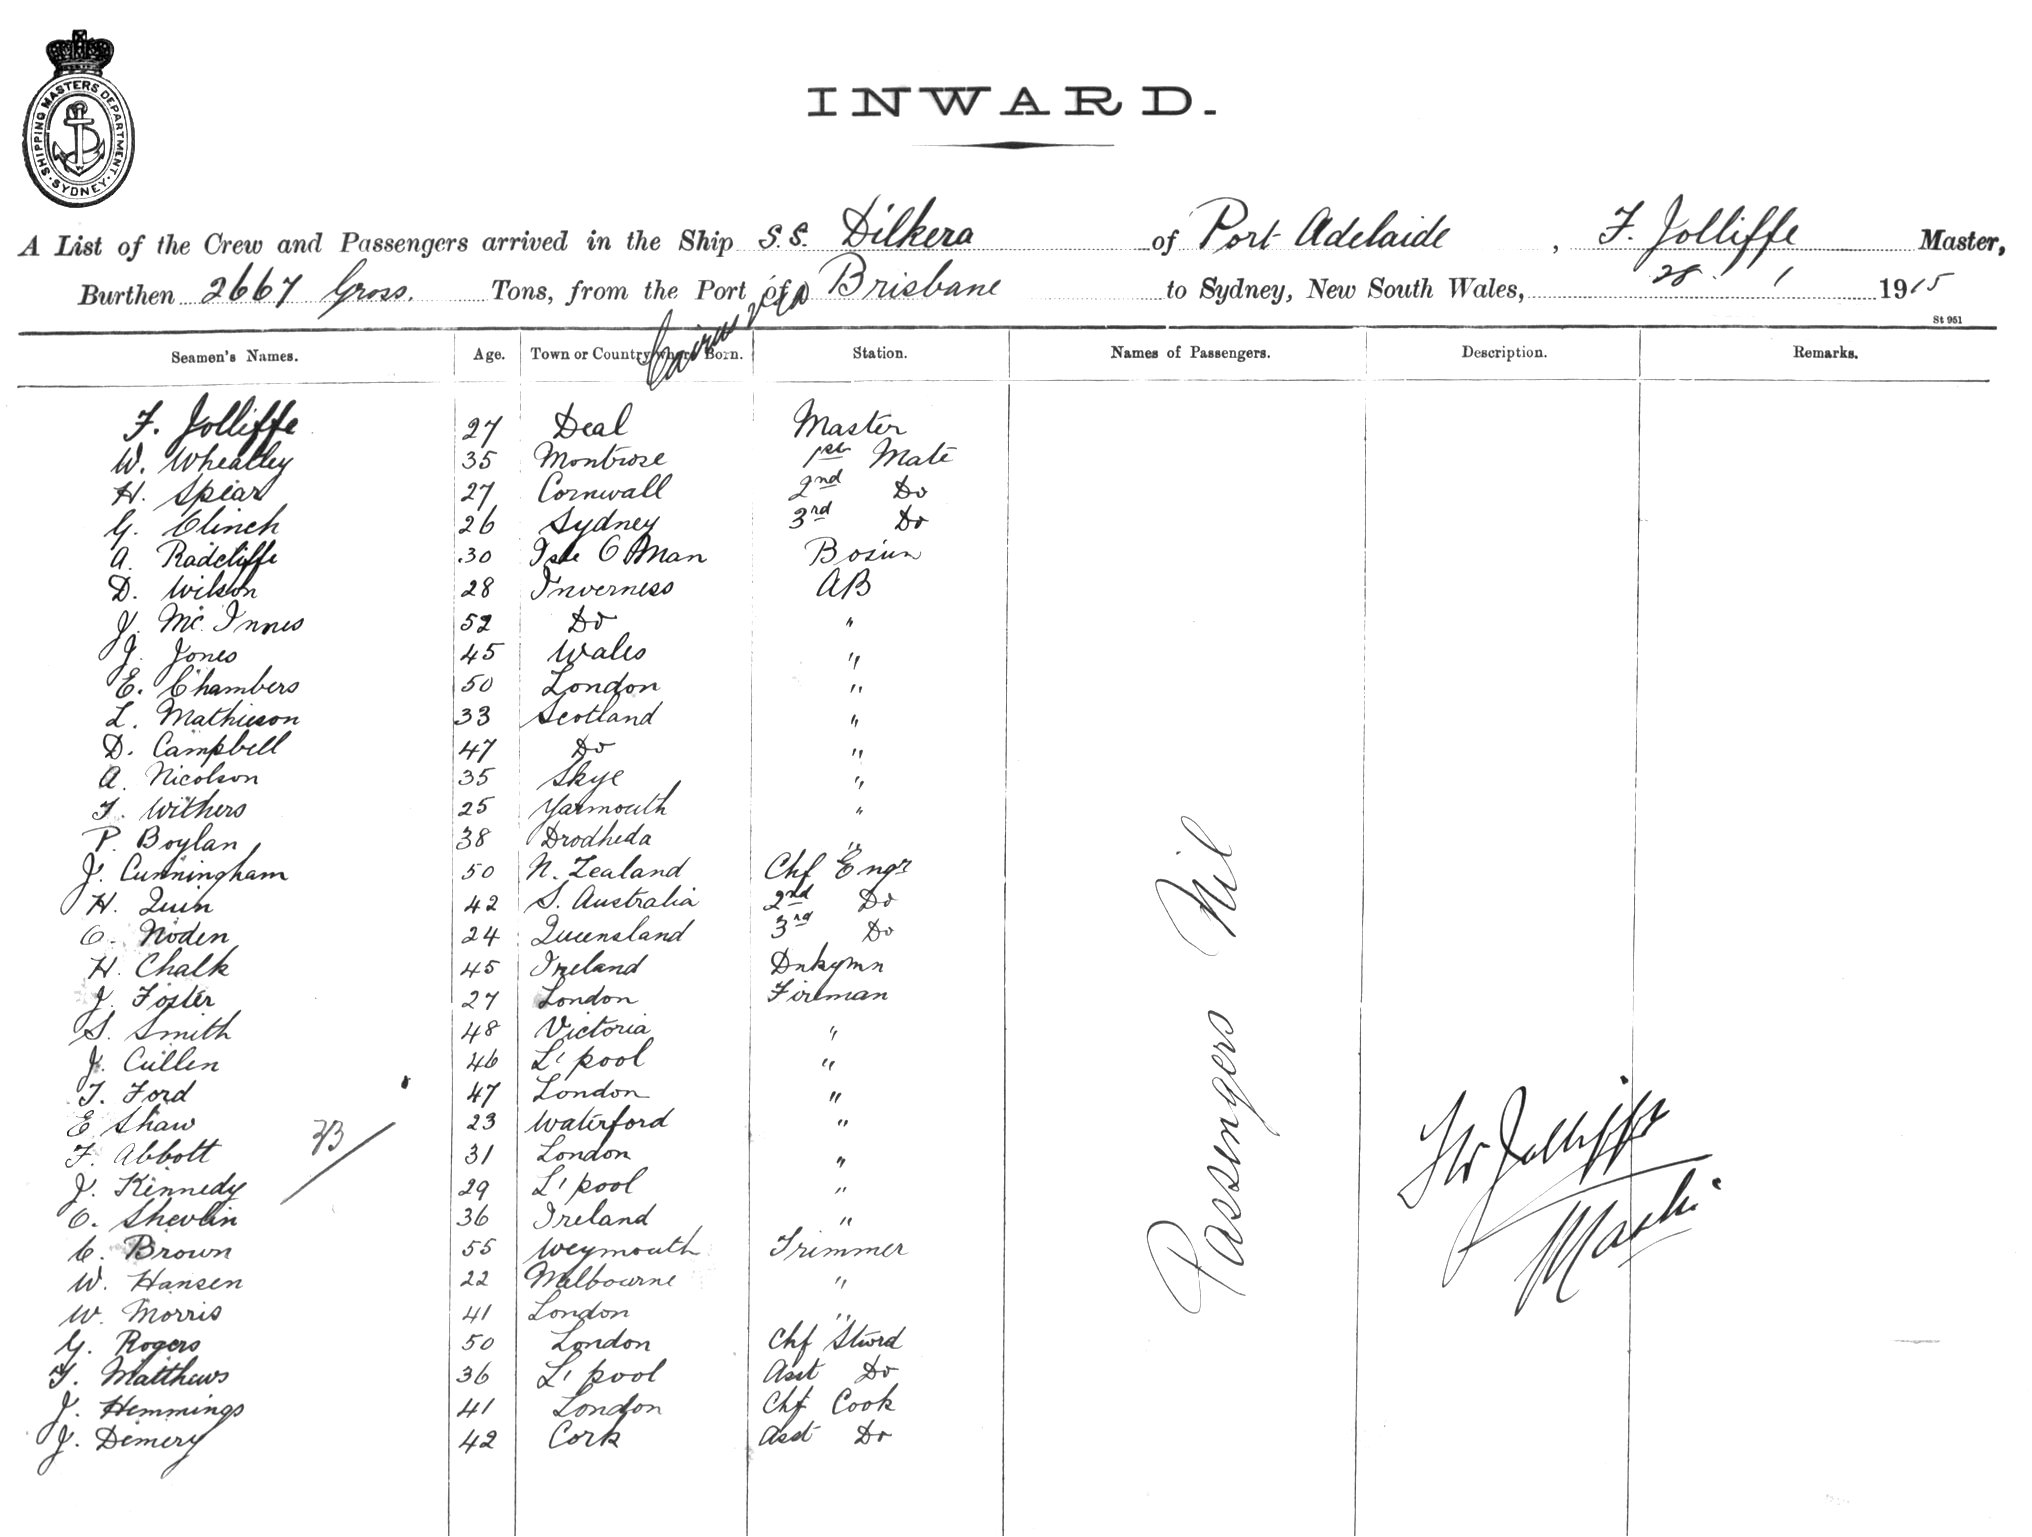 SHIPPING MASTERS DEPARTMENT. SYDNEY.
INWARD.
A List of the Crew and Passengers arrived in the Ship S.S. Dilkera of Port Adelaide, F. Jolliffe Master,
Burthen 2667 Gross. Tons, from the Port of Cairns via Brisbane to Sydney, New South Wales, 28 1 1915
St 951
Seamen's Names. Age. Town or Country where Born. Station. Names of Passengers. Description. Remarks.
F. Jolliffe 27 Deal Master
W. Wheatley 35 Montrose 1st Mate
H. Spear 27 Cornwall 2nd Do
G. Clinch 26 Sydney 3rd Do
A. Radcliffe 30 Isle O Man Bosun
D. Wilson 28 Inverness AB
J. Mc Innes 52 Do "
J. Jones 45 Wales "
E. Chambers 50 London "
L. Mathieson 33 Scotland "
D. Campbell 47 Do "
A. Nicolson 35 Skye "
F. Withers 25 Yarmouth "
P. Boylan 38 Drodheda "
J. Cunningham 50 N. Zealand Chf Engr
H. Quin 42 S. Australia 2nd Do
O. Noden 24 Queensland 3rd Do
H. Chalk 45 Ireland Dnkymn
J. Foster 27 London Fireman
S. Smith 48 Victoria "
J. Cullen 46 L'pool "
T. Ford 47 London "
E Shaw 23 Waterford "
F. Abbott 31 London "
J. Kennedy 29 L'pool "
O. Shevlin 36 Ireland "
C. Brown 55 Weymouth Trimmer
W. Hansen 22 Melbourne "
W. Morris 41 London "
G. Rogers 50 London Chf Stwrd
F. Matthews 36 L'pool Asst Do
J. Hemmings 41 London Chf Cook
J. Demery 42 Cork Asst Do
33
Passengers Nil
Jolliffe
Master